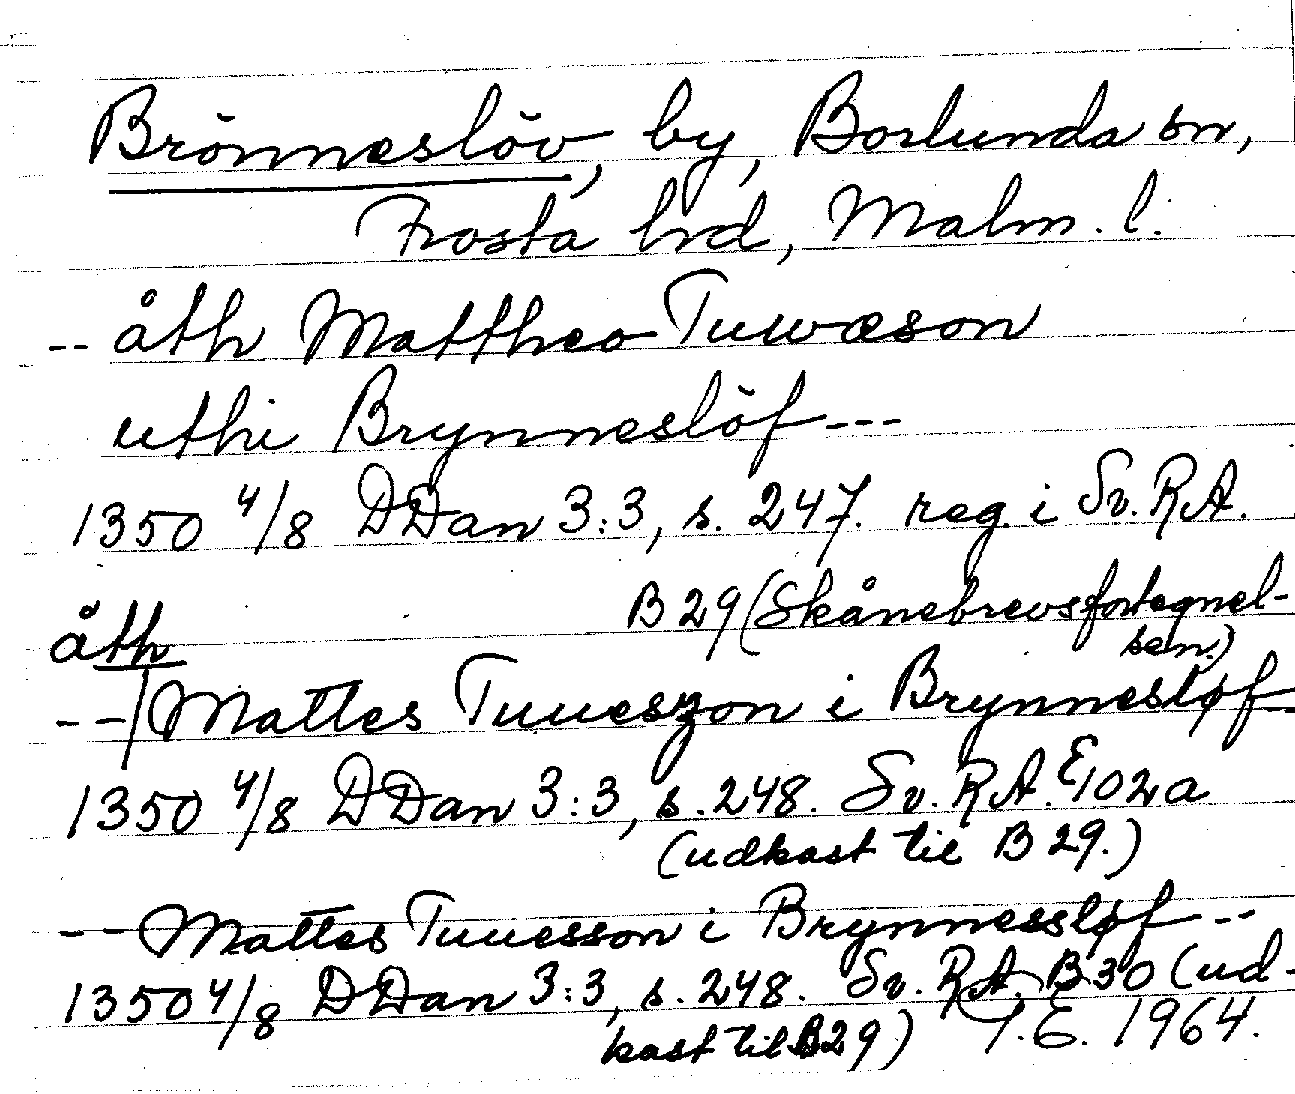 Brönneslöv, by, Borlunda sn,
Frosta hrd, Malm. l.
-- åth Mattheo Tuwæson
uthi Brynneslöf ---
1350 4/8 DDan 3:3, s. 247. reg. i Sv. R.A.
B 29 (Skånebrevsfortegnel-
sen.)
åth
--/Mattes Tuueszon i Brynnesløf--
1350 4/8 DDan 3:3, s. 248. Sv. R.A. E102a
(udkast til B 29.)
-- Mattes Tuuesson i Brynnessløf --
1350 4/8 DDan 3:3, s. 248. Sv. R.A. B30 (ud-
kast til B29) I.E. 1964.